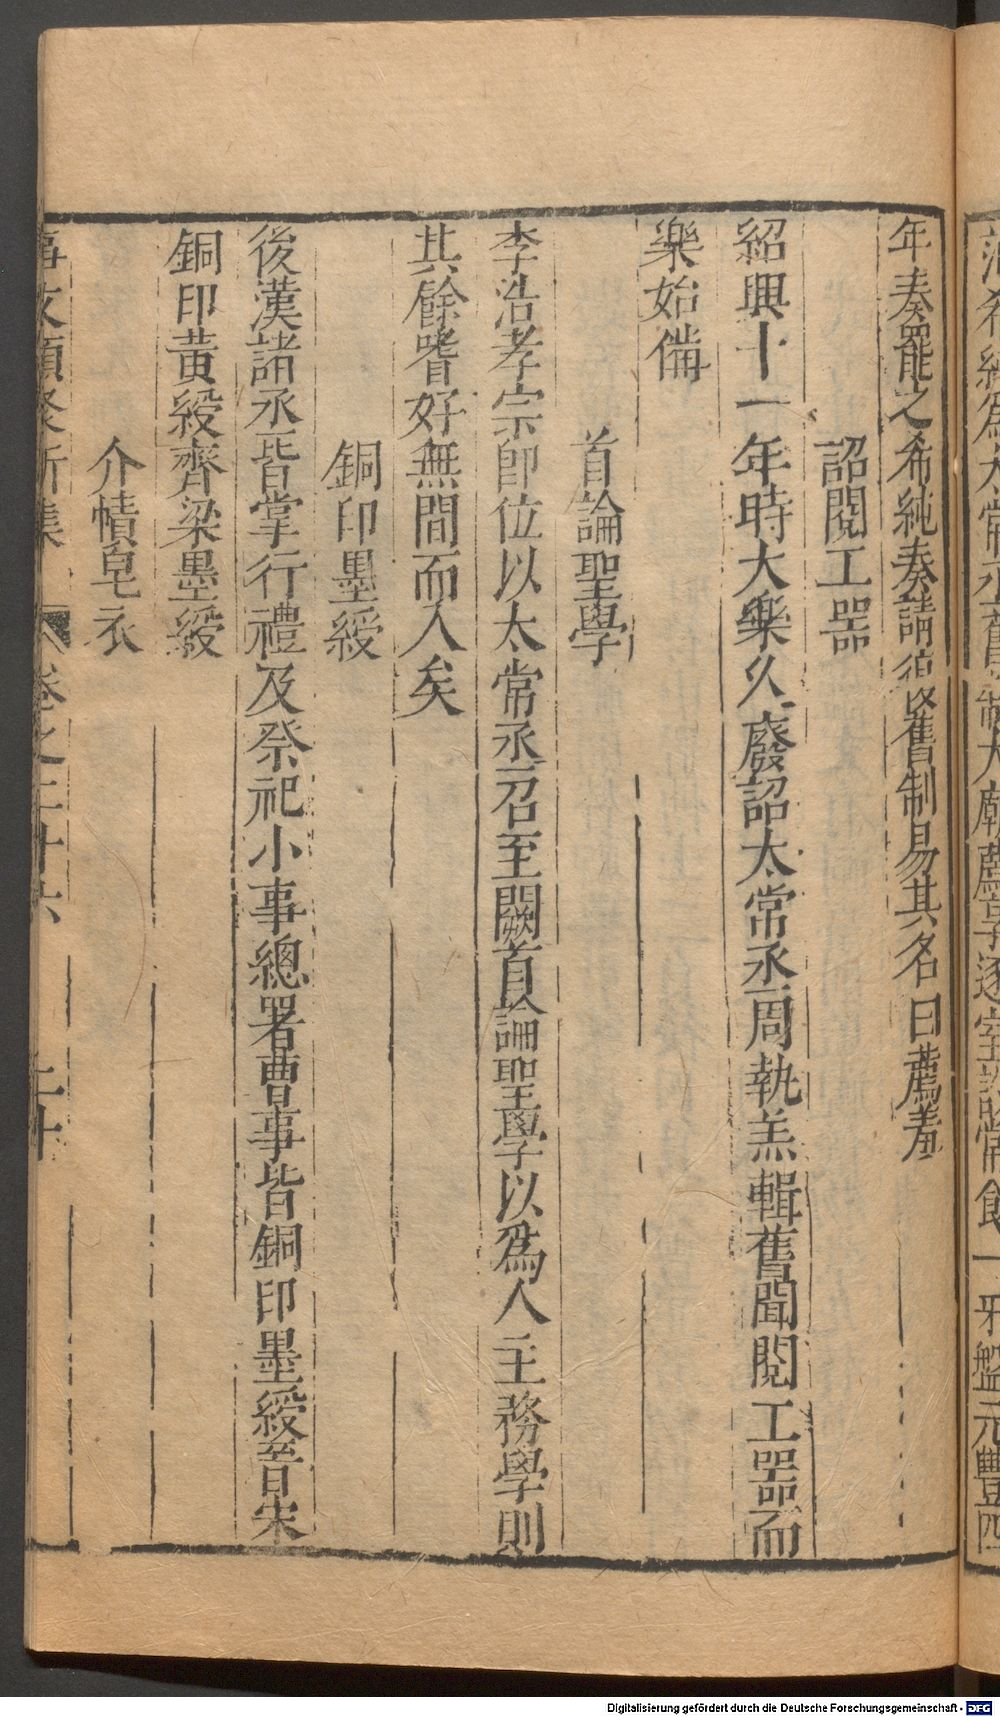 年奏罷之希純奏請復舊制易其名曰薦羞
詔閱工器
紹興十一年時大樂久廢詔太常丞周執羔輯舊聞閱工器而
樂始備
首論聖學
李浩孝宗卽位以太常丞召至闕首論聖學以爲人主務學則
其餘嗜好無間而入矣
銅印墨綬
後漢諸丞皆掌行禮及祭祀小事總署曹事皆銅印墨綬晉宋
銅印黃綬齊梁墨綬
介幘皂衣
事文類聚新集 卷之二十六 二十
希純爲太常丞舊制大廟薦享逐室設常食一牙盤元豐四
Digitalisierung gefördert durch die Deutsche Forschungsgemeinschaft - DFG